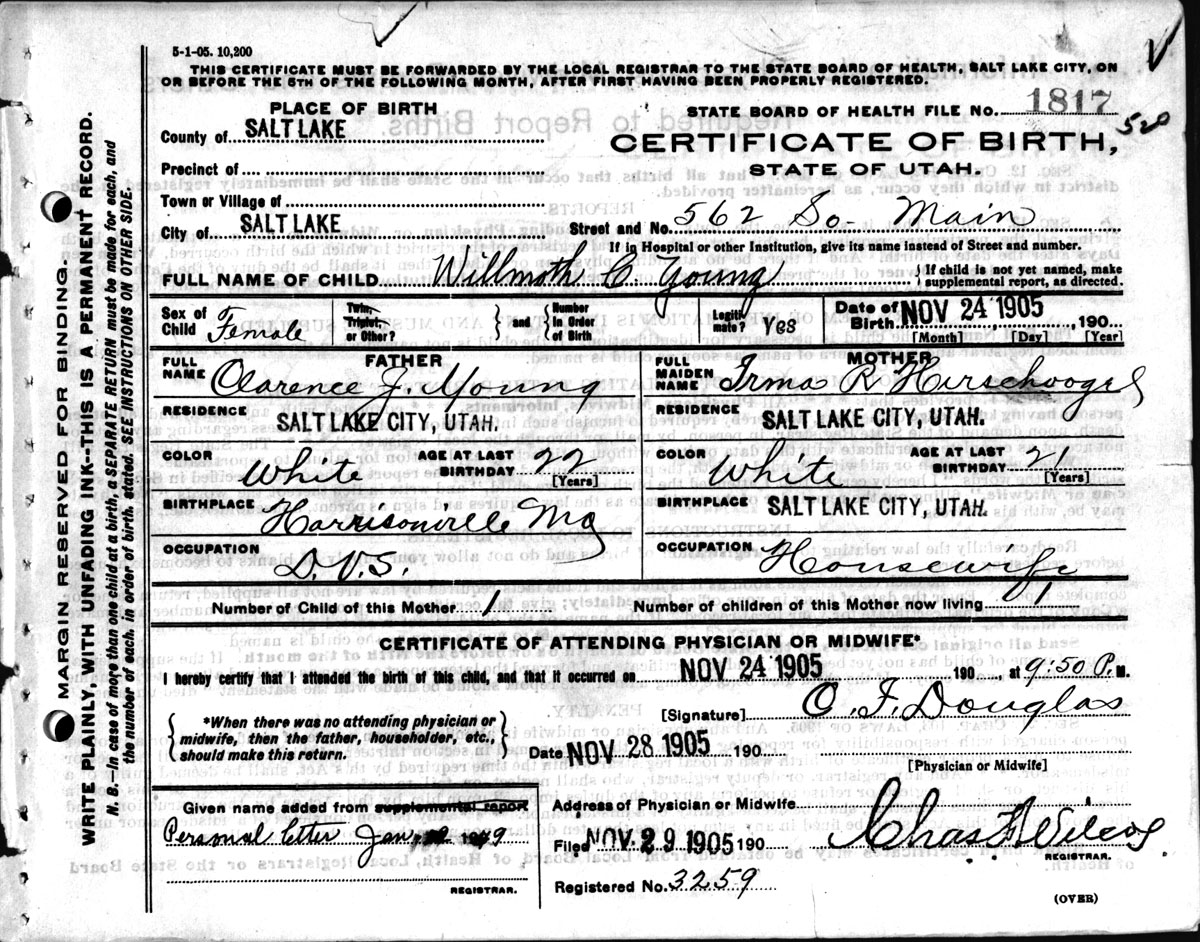 5-1-05. 10,200
THIS CERTIFICATE MUST BE FORWARDED BY THE LOCAL REGISTRAR TO THE STATE BOARD OF HEALTH, SALT LAKE CITY, ON
OR BEFORE THE 5TH OF THE FOLLOWING MONTH, AFTER FIRST HAVING BEEN PROPERLY REGISTERED.
PLACE OF BIRTH
STATE BOARD OF HEALTH FILE NO. 1817
520
County of SALT LAKE
CERTIFICATE OF BIRTH,
Precinct of
STATE OF UTAH.
Town or Village of
City of SALT LAKE
Street and No. 562 So. Main
If in Hospital or other Institution, give its name instead of Street and number.
FULL NAME OF CHILD Willmoth C Young
If child is not yet named, make
supplemental report, as directed.
Sex of Child Female
Twin, Triplet, or Other?
and
Number in Order of Birth
Legitimate? Yes
Date of Birth NOV 24 1905, 190
[Month] [Day] [Year]
FATHER
FULL NAME Clarence J. Young
RESIDENCE
SALT LAKE CITY, UTAH.
COLOR White
AGE AT LAST BIRTHDAY 22
[Years]
BIRTHPLACE
Harrisonville Mo
OCCUPATION
D.V.S.
MOTHER
FULL MAIDEN NAME Irma R
RESIDENCE
SALT LAKE CITY, UTAH.
COLOR White
AGE AT LAST BIRTHDAY 21
[Years]
BIRTHPLACE SALT LAKE CITY, UTAH.
OCCUPATION Housewife
Number of Child of this Mother 1
Number of children of this Mother now living 1
CERTIFICATE OF ATTENDING PHYSICIAN OR MIDWIFE*
I hereby certify that I attended the birth of this child, and that it occurred on NOV 24 1905 190, at 9:50 P. M.
*When there was no attending physician or
midwife, then the father, householder, etc.,
should make this return.
[Signature] C. F. Douglas
Date NOV 28 1905 190
[Physician or Midwife]
Given name added from supplemental report
Personal letter Jan 1949
REGISTRAR.
Address of Physician or Midwife
Filed NOV 29 1905 190
Chas
REGISTRAR.
Registered No. 3259
(OVER)
MARGIN RESERVED FOR BINDING.
WRITE PLAINLY, WITH UNFADING INK--THIS IS A PERMANENT RECORD.
N. B. In case of more than one child at a birth, a SEPARATE RETURN must be made for each, and
the number of each, in order of birth, stated. SEE INSTRUCTIONS ON OTHER SIDE.